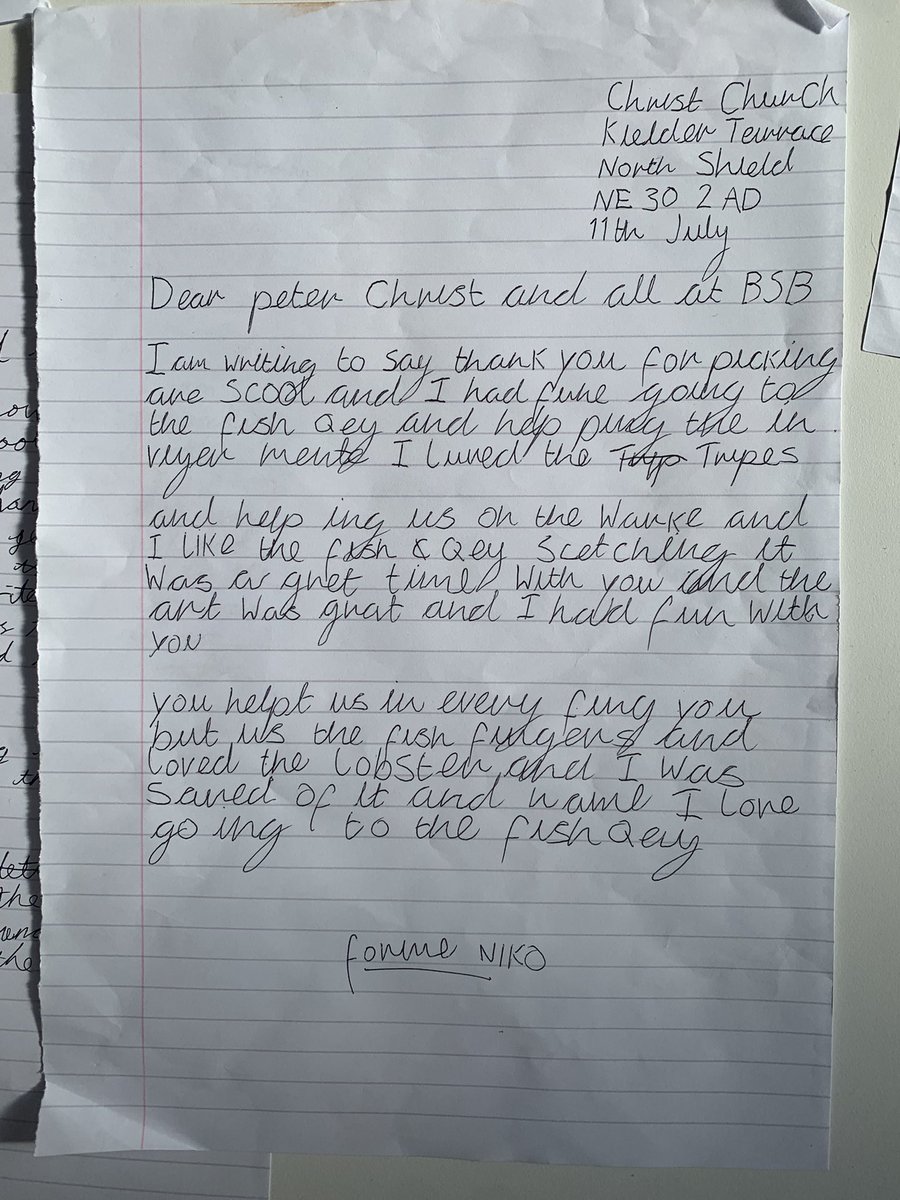 Christ Church
Kielder Terrace
North Shield
NE 30 2 AD
11th July
Dear peter Christ and all at BSB
I am writing to say thank you for picking
are SCOOl and I had fune going to
the fish Qey and help puig the in
vuyer mente I luved the Tripes
and help ing us on the Wauke and
I LIKE the fish & Qey Scetching it
was a gret time With you and the
art was grat and I had fun with
you
you helpt us in every fing you
but us the fish fingers and
loved the lobster and I was
Saved of it and name I love
going to the fish Qey
forme NIKO